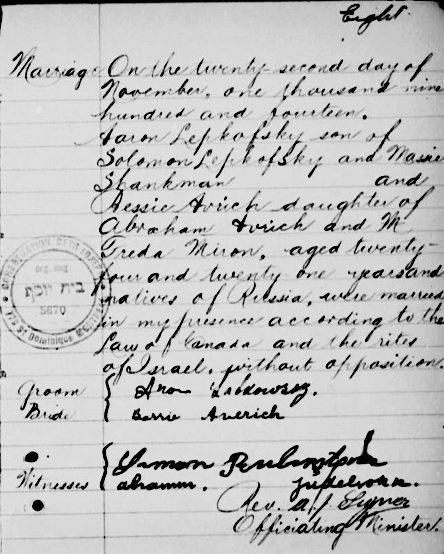 Eight
Marriage On the twenty second day of
November, one thousand nine
hundred and fourteen.
Aaron Lepkofsky son of
Solomon Lepkofsky and Massie
Shankman and
Hessie Avrich daughter of
Abraham Avrich and M
Freda Miron, aged twenty-
four and twenty one years and
natives of Russia, were married
in my presence according to the
Law of Canada and the rites
of Israel, without opposition.
Groom Aron
Bride Averich
Witnesses
Rev. A. J.
Officiating Minister.
CONGREGATION BETH
בית יוסף
5670
St. Dominique